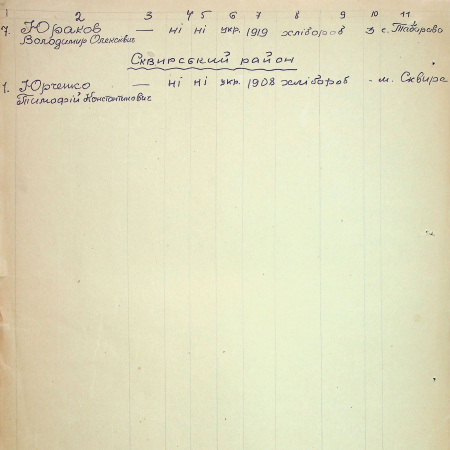 1 2 3 4 5 6 7 8 9 10 11
7. Юраков — ні ні укр. 1919 хлібороб 3 с. Табирово
Володимир Олексієвич
Сквирський район
1. Юрченко — ні ні укр. 1908 хлібороб - м. Сквира
Тимофій Константинович